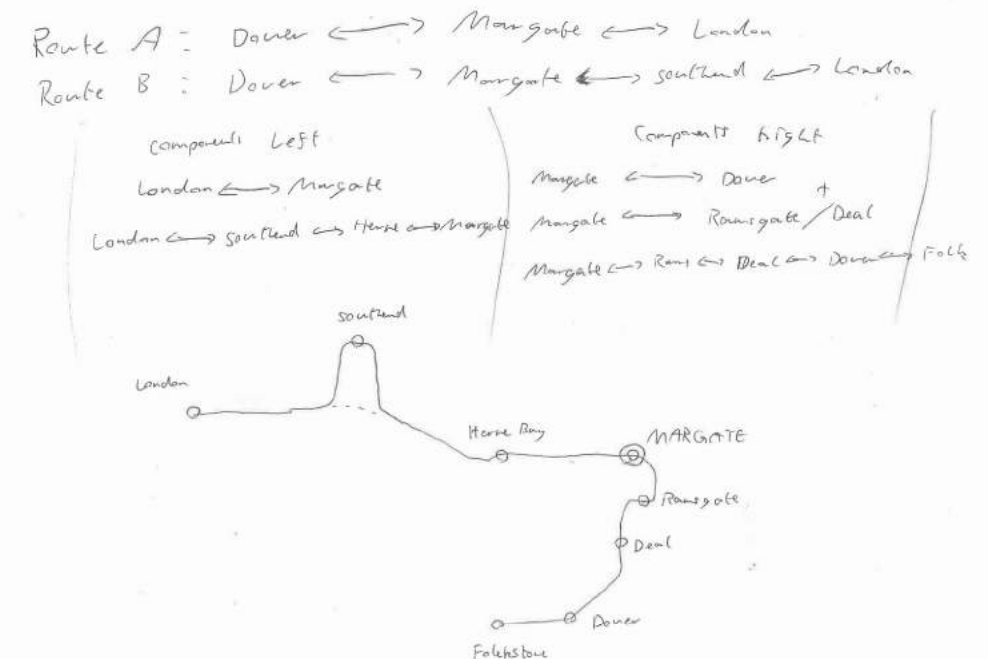 Route A : Dover <—> Margate <—> London
Route B : Dover <—> Margate <—> Southend <—> London
Components Left
London <—> Margate
London <—> Southend <—> Herne <—> Margate
Components Right
Margate <—> Dover
Margate <—> Ramsgate / + Deal
Margate <—> Rams <—> Deal <—> Dover <—> Folk
Southend
London
Herne Bay
MARGATE
Ramsgate
Deal
Dover
Folkestone